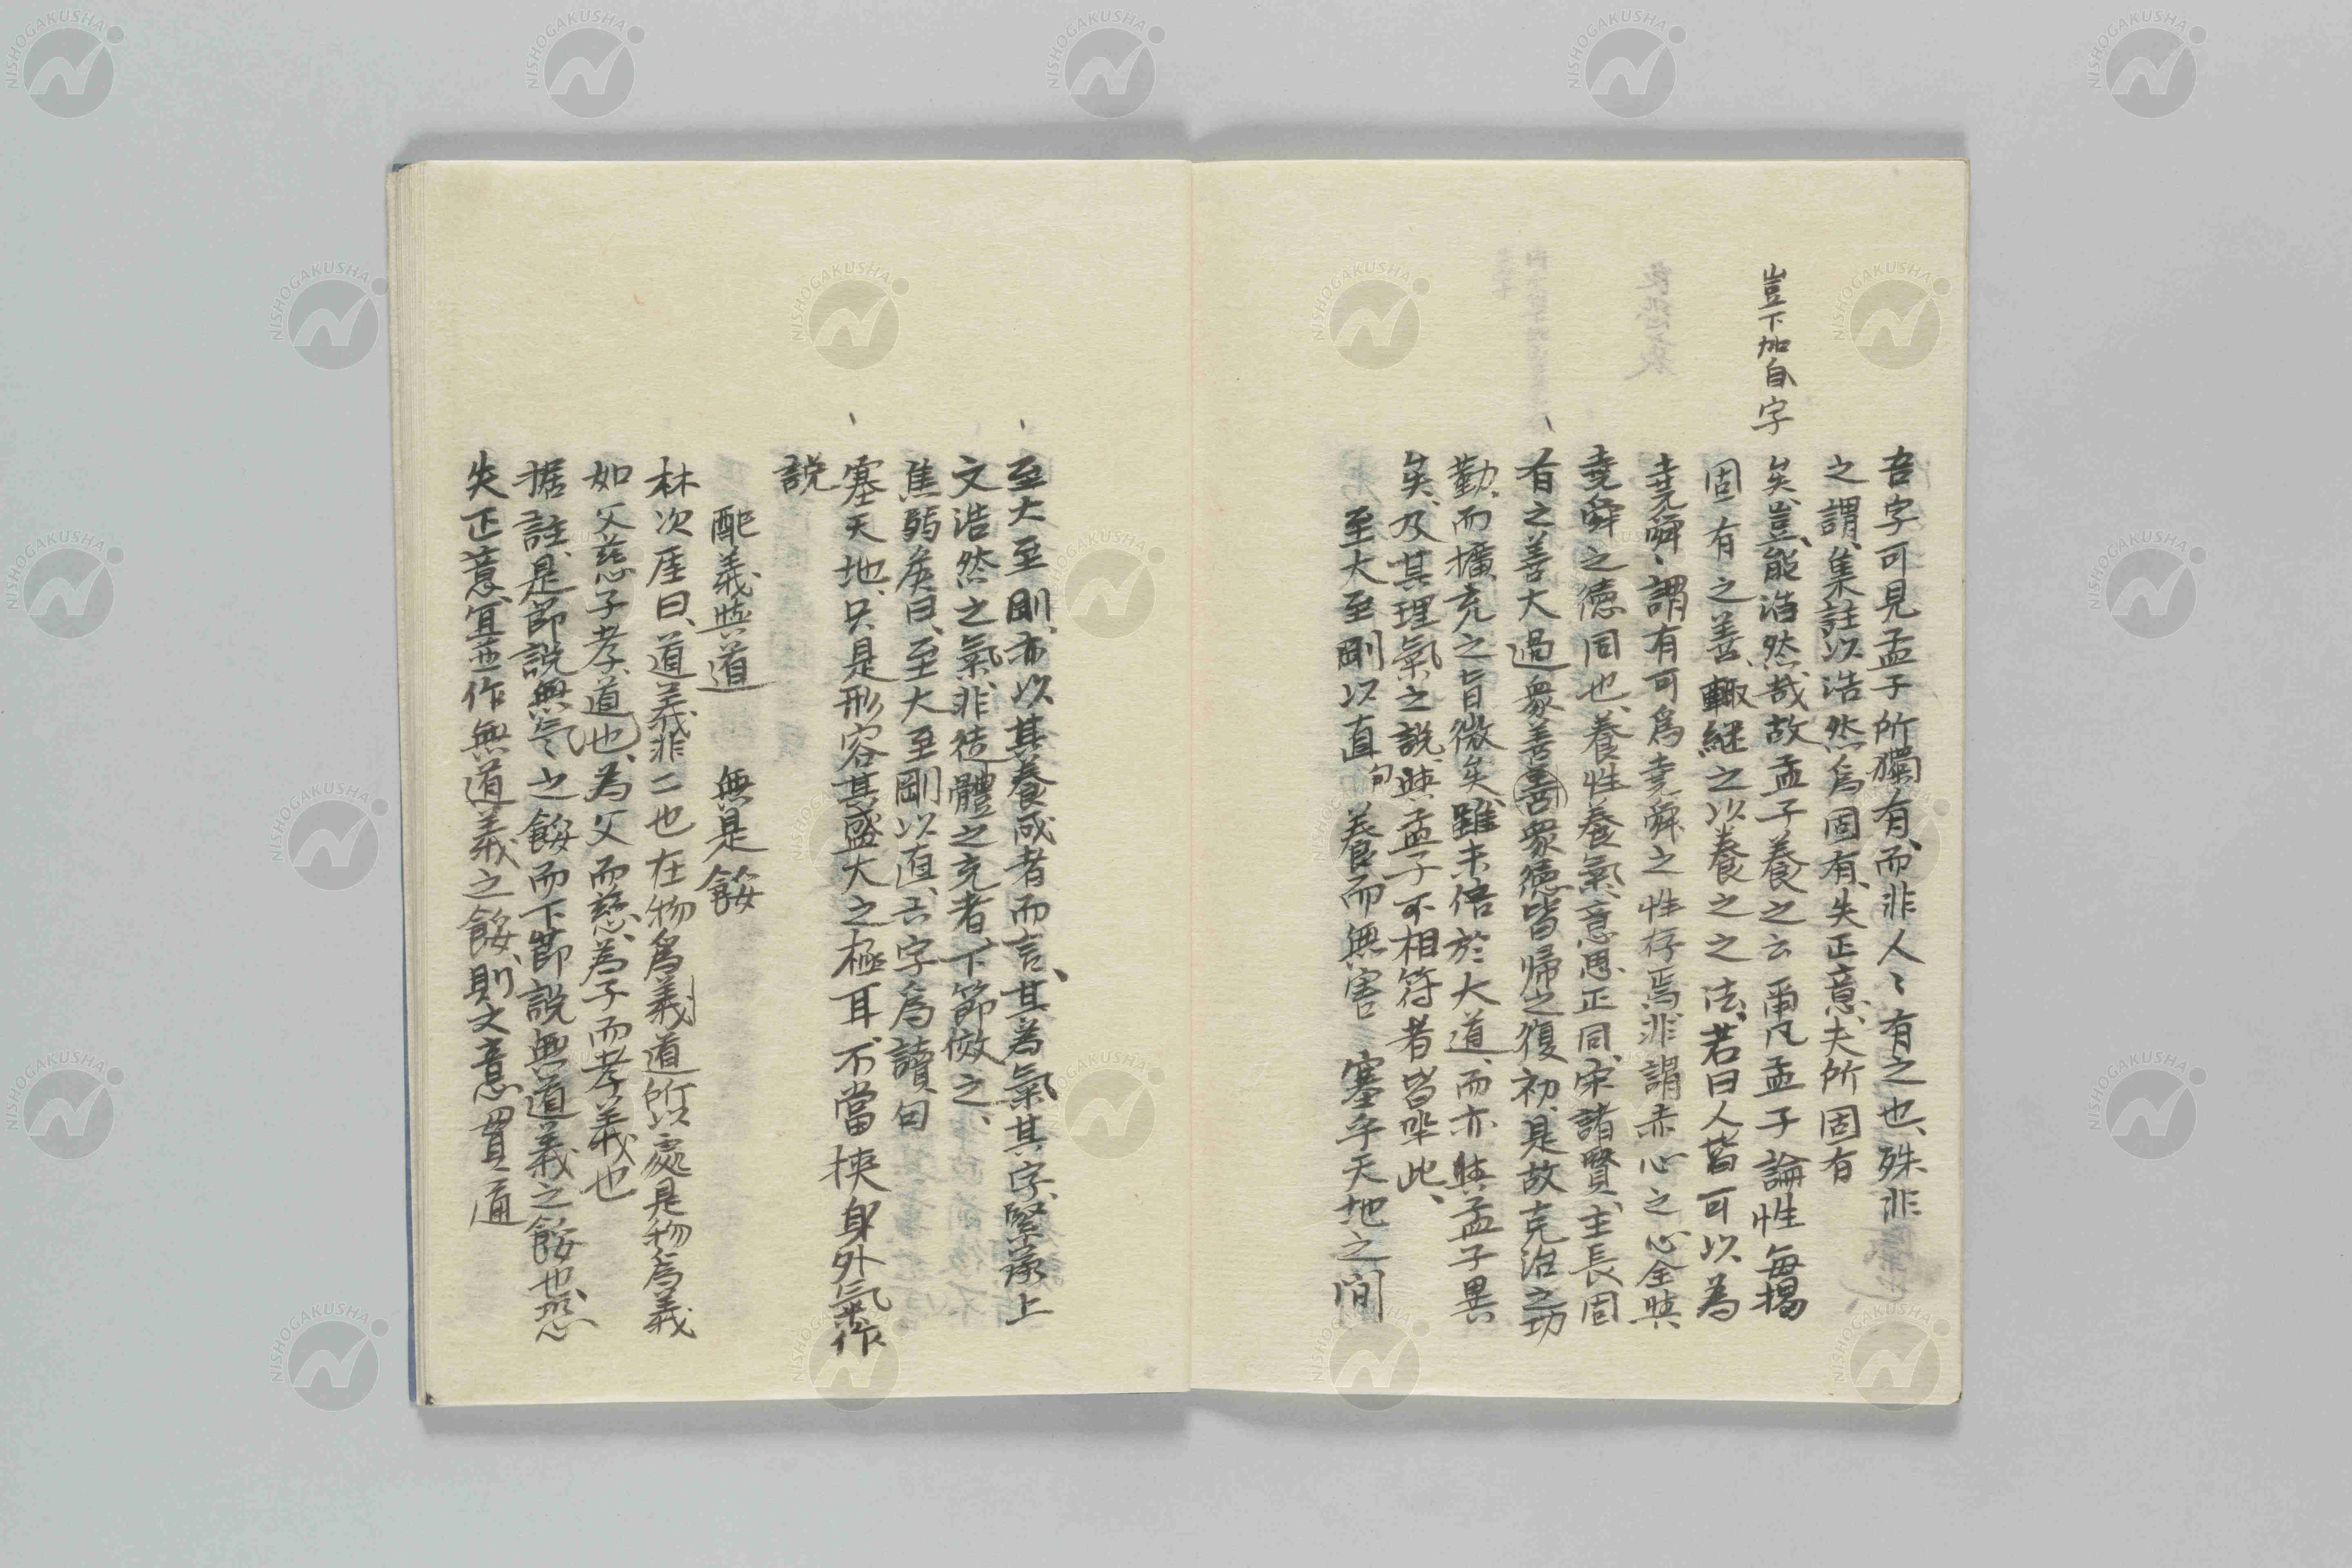 豈下加自字
吾字可見孟子所獨有、而非人〻有之也、殊非
之謂、集註以浩然爲固有、失正意、夫所固有
矣、豈能浩然哉故孟子養之云爾凡孟子論性每揭
固有之善、輙継之以養之之法、若曰人皆可以為
堯舜、謂有可爲堯舜之性存焉、非謂赤心之心全與
堯舜之德同也、養性養氣、意思正同、宋諸賢、主長固
有之善大過衆善善衆德皆帰之復初、是故克治之功
勤、而擴充之旨微矣、雖未倍於大道、而亦與孟子異
矣、及其理氣之說、與孟子不相符者皆坐此、
至大至剛以直句 養而無害 塞乎天地之間
至大至剛、亦以其養成者而言、其為氣其字、緊承上
文浩然之氣、非徒體之充者、下節倣之、
焦弱侯曰、至大至剛以直、六字爲讀、句
塞天地、只是形容其盛大之極耳、不當挾身外氣作
説
配義與道 無是餒
林次厓曰、道義非二也在物爲義道所以處是物爲義
如父慈子孝、道也、為父而慈、為子而孝義也
据註、是節說無气之餒而下節說無道義之餒也、恐
失正意、宜並作無道義之餒、則文意貫通
NISHOGAKUSHA